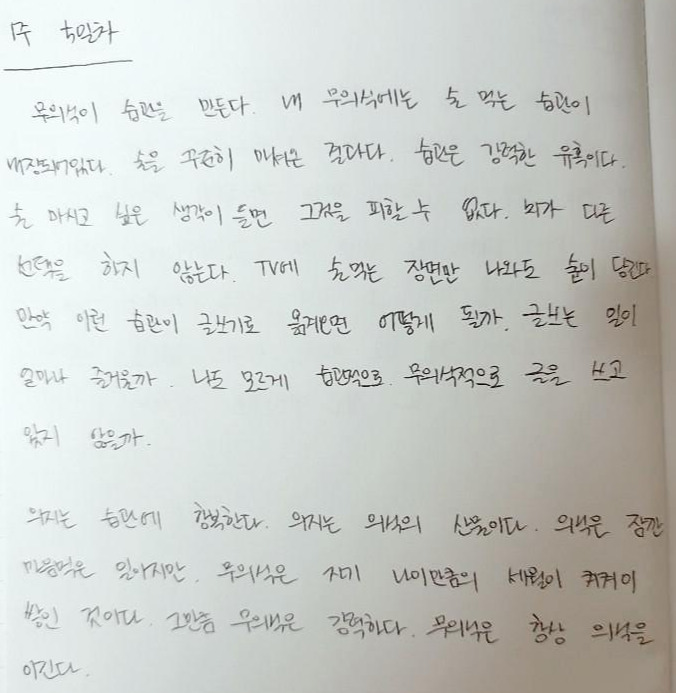 1주 5일차
무의식이 습관을 만든다. 내 무의식에는 술 먹는 습관이
내장되어있다. 술을 꾸준히 마셔온 결과다. 습관은 강력한 유혹이다.
술 마시고 싶은 생각이 들면 그것을 피할 수 없다. 뇌가 다른
선택을 하지 않는다. TV에 술먹는 장면만 나와도 술이 당긴다
만약 이런 습관이 글쓰기로 옮겨오면 어떻게 될까. 글쓰는 일이
얼마나 즐거울까. 나도 모르게 습관적으로. 무의식적으로 글을 쓰고
있지 않을까.
의지는 습관에 항복한다. 의지는 의식의 산물이다. 의식은 잠깐
마음먹은 일이지만, 무의식은 자기 나이만큼의 세월이 켜켜이
쌓인 것이다. 그만큼 무의식은 강력하다. 무의식은 항상 의식을
이긴다.